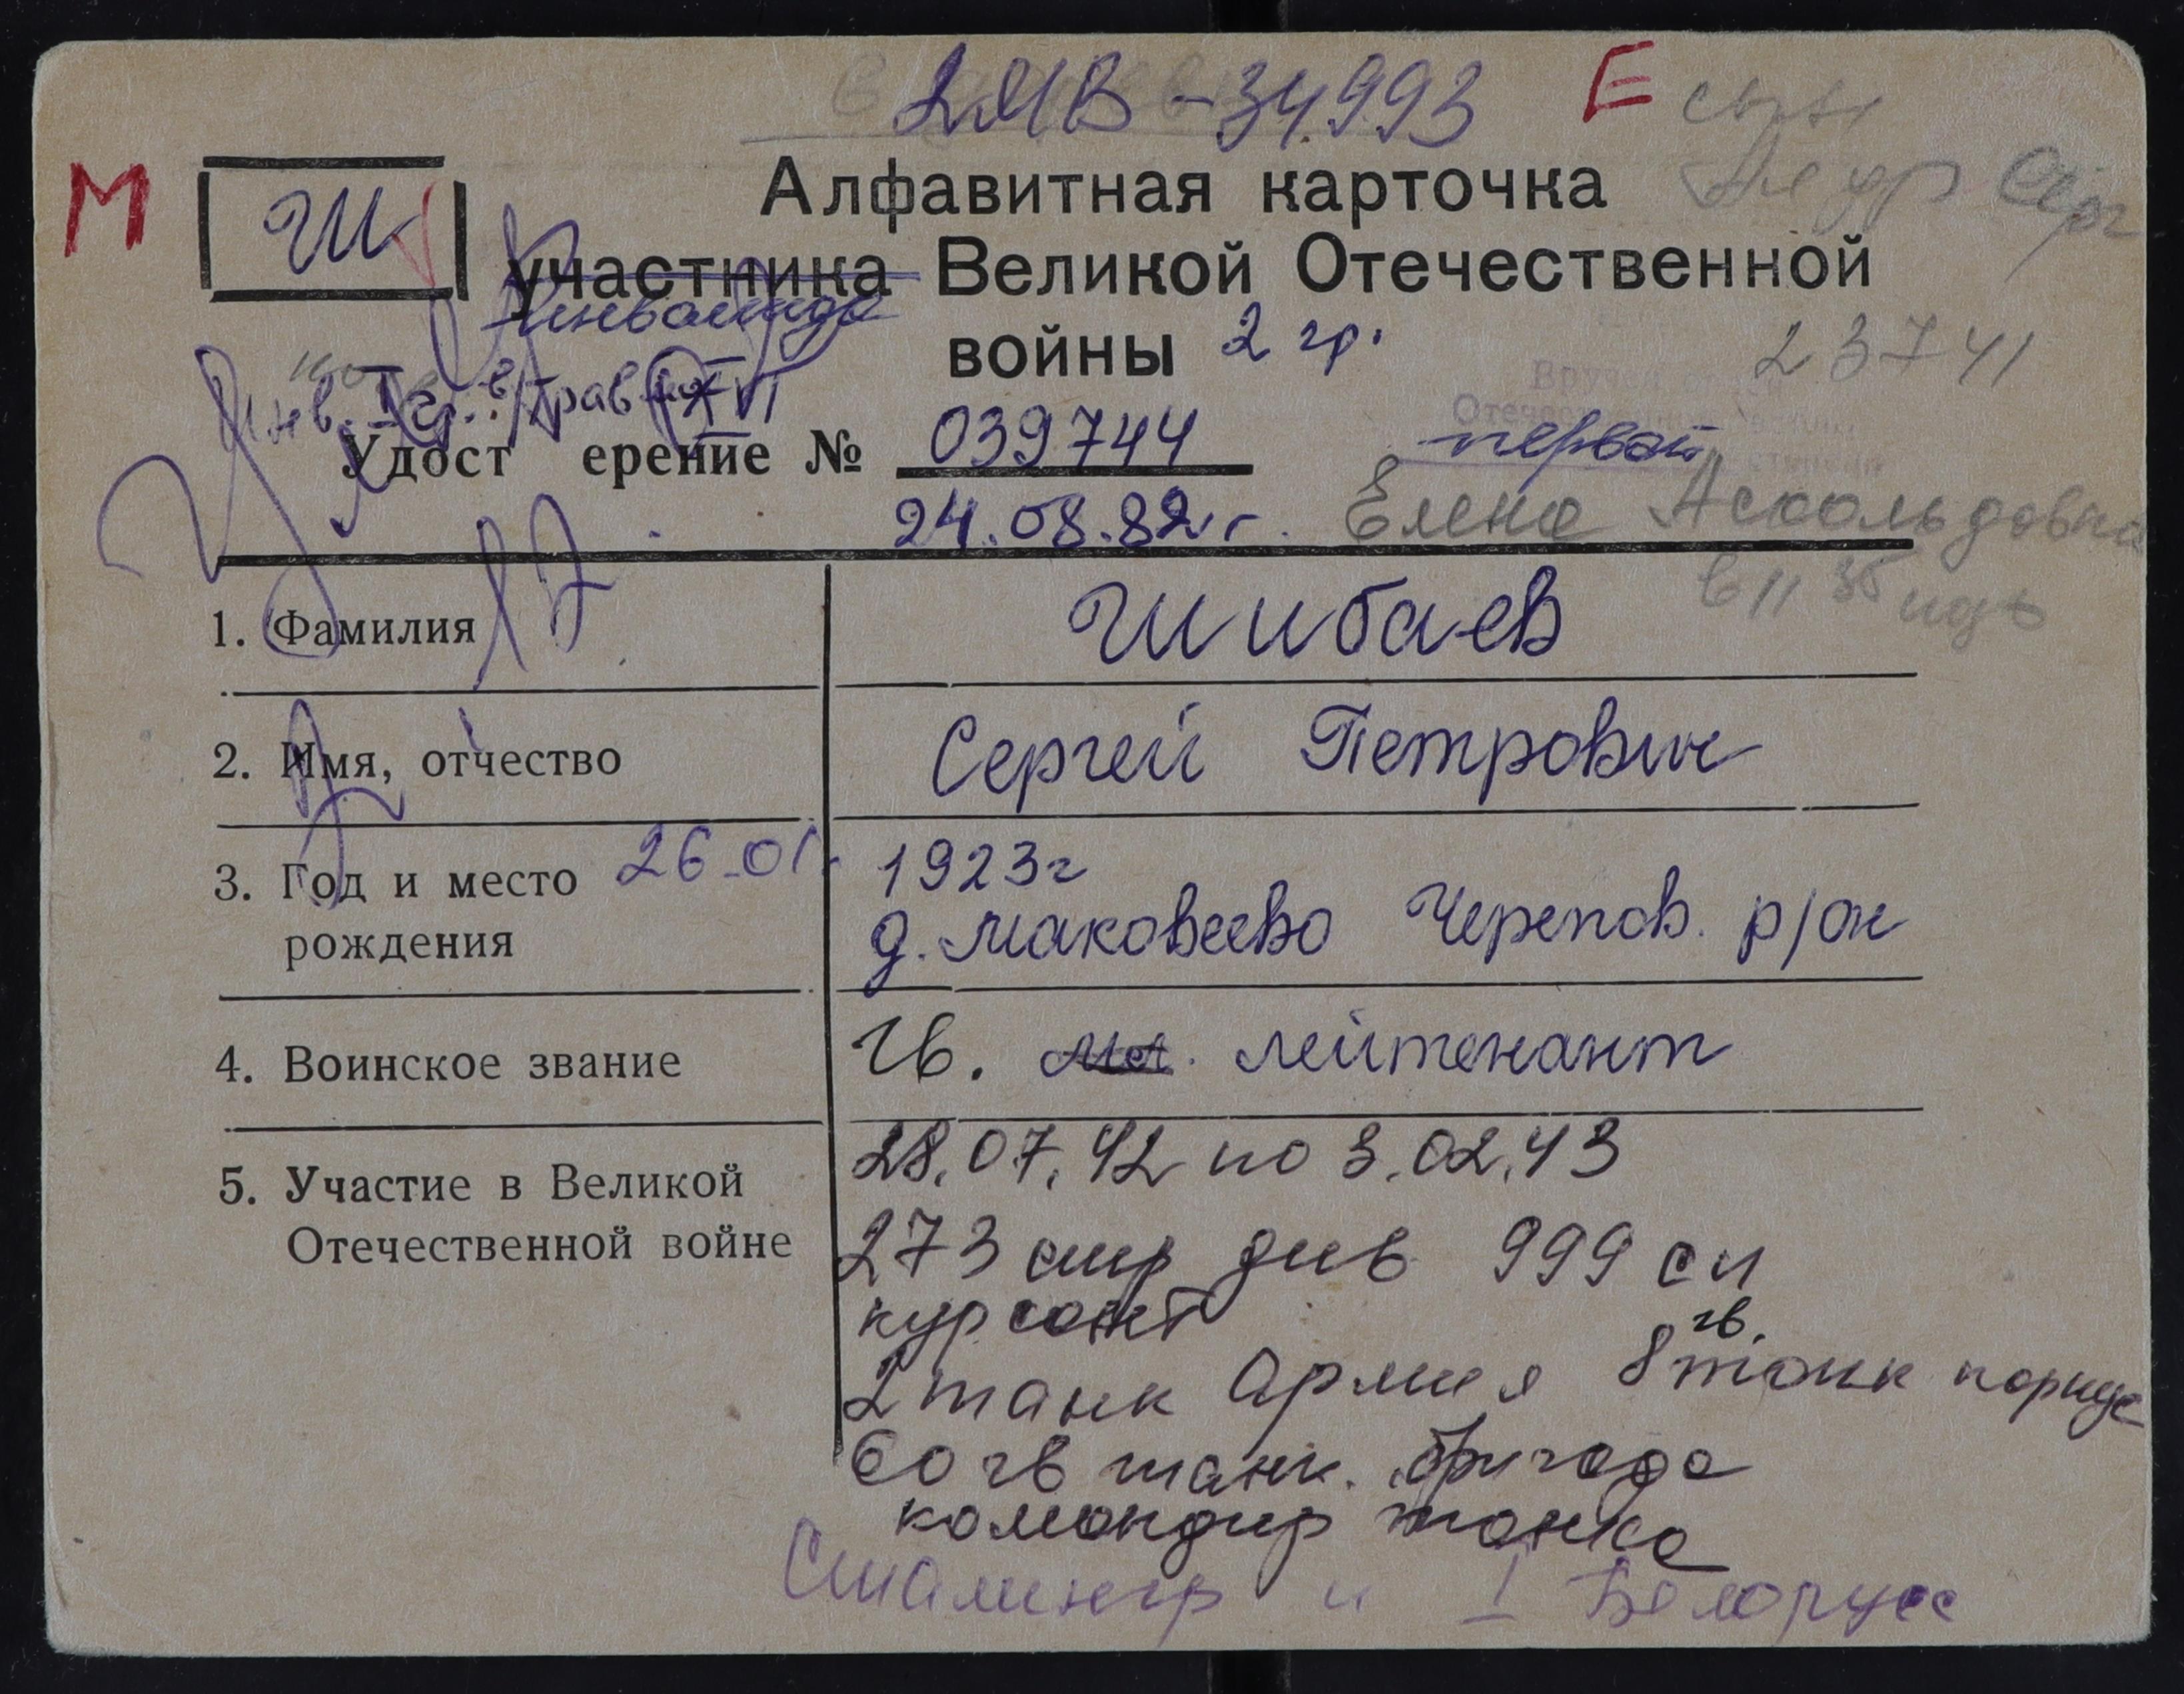 2МВ-34993 Е
М
Ш
Алфавитная карточка
участника Великой Отечественной
инвалида
войны 2 гр.
23741
Инв. I гр.
Удост ерение № 039744
первой
24.08.82 г. Елена Аскольдовна
1. Фамилия Шибаев
2. Имя, отчество Сергей Петрович
3. Год и место рождения 26.01. 1923г
д. Маковеево Черепов. р/он
4. Воинское звание Гв. мл. лейтенант
5. Участие в Великой Отечественной войне
28.07.42 по 3.02.43
273 стр див 999 сп
курсант
2 танк Армия 8 гв. танк корпус
60 гв танк. бригада
командир танка
Сталингр и I Белорусс